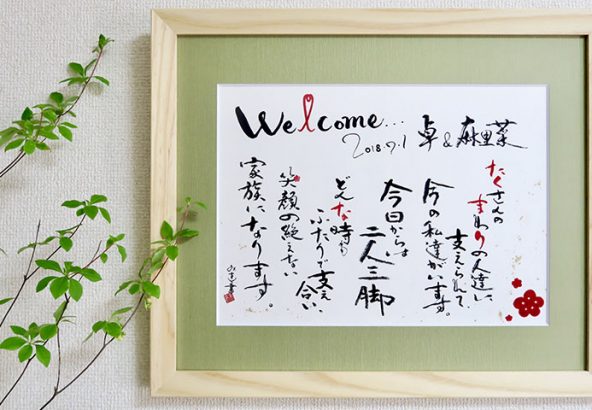 Welcome...
2018.7.1
卓&麻里菜
たくさんの
まわりの人達に
支えられて
今の私達がいます。
今日からは
二人三脚
どんな時も
ふたりで支え合い
笑顔の絶えない
家族になります。